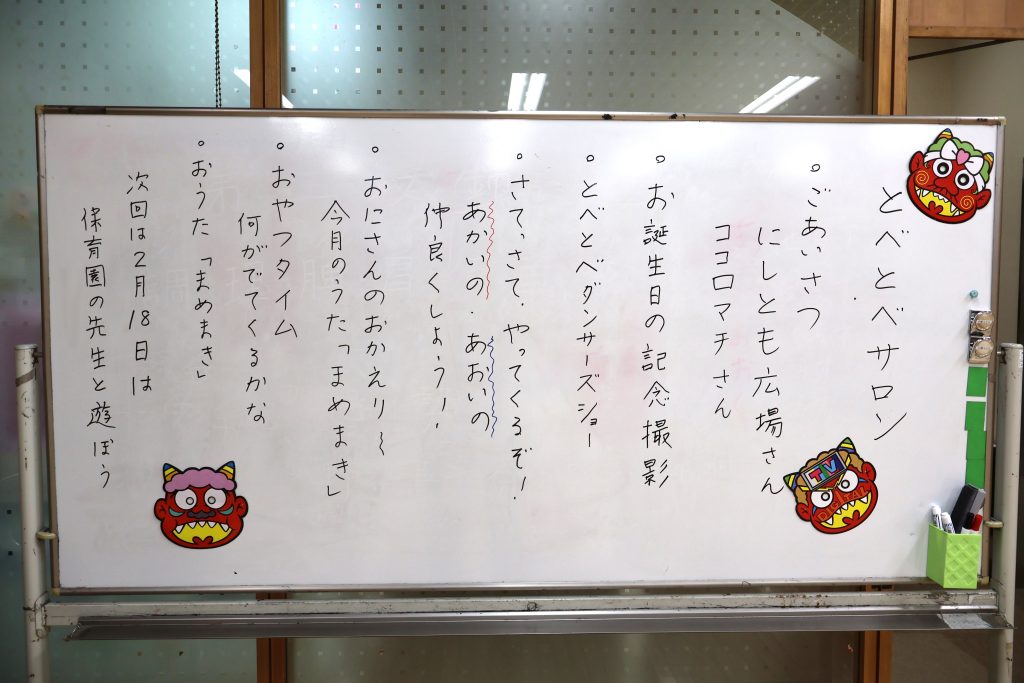 とべとべサロン
。ごあいさつ
にしとも広場さん
ココロマチさん
。お誕生日の記念撮影
。とべとべダンサーズショー
。さてっさて、やってくるぞ!
あかいの、あおいの
仲良くしよう!
。おにさんのおかえり〜
今月のうた「まめまき」
。おやつタイム
何がでてくるかな
。おうた「まめまき」
次回は2月18日は
保育園の先生と遊ぼう
TV
DIGITAL